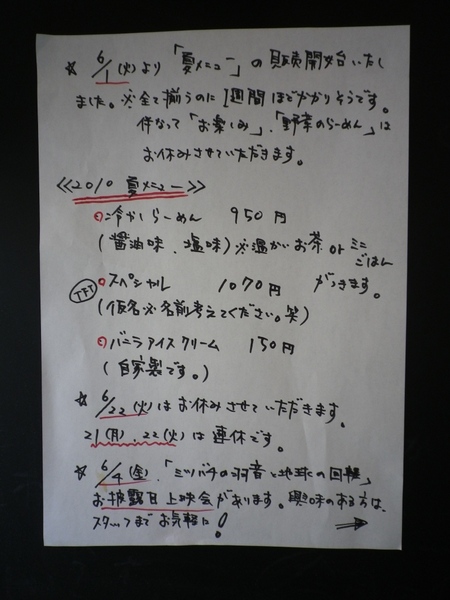 ☆ 6/1(火)より「夏メニュー」の販売開始いたし
ました。※全て揃うのに1週間ほどかかりそうです。
伴なって「お楽しみ」、「野菜のらーめん」は
お休みさせていただきます。
≪2010 夏メニュー≫
○冷やしらーめん 950円
(醤油味、塩味)※温かいお茶 or ミニ
ごはん
がつきます。
○スペシャル 1070円
(仮名※名前考えてください。笑)
○バニラアイスクリーム 150円
(自家製です。)
☆ 6/22(火)はお休みさせていただきます。
21(月)、22(火)は連休です。
☆ 6/4(金)、「ミツバチの羽音と地球の回転」
お披露目上映会があります。興味のある方は、
スタッフまでお気軽に!